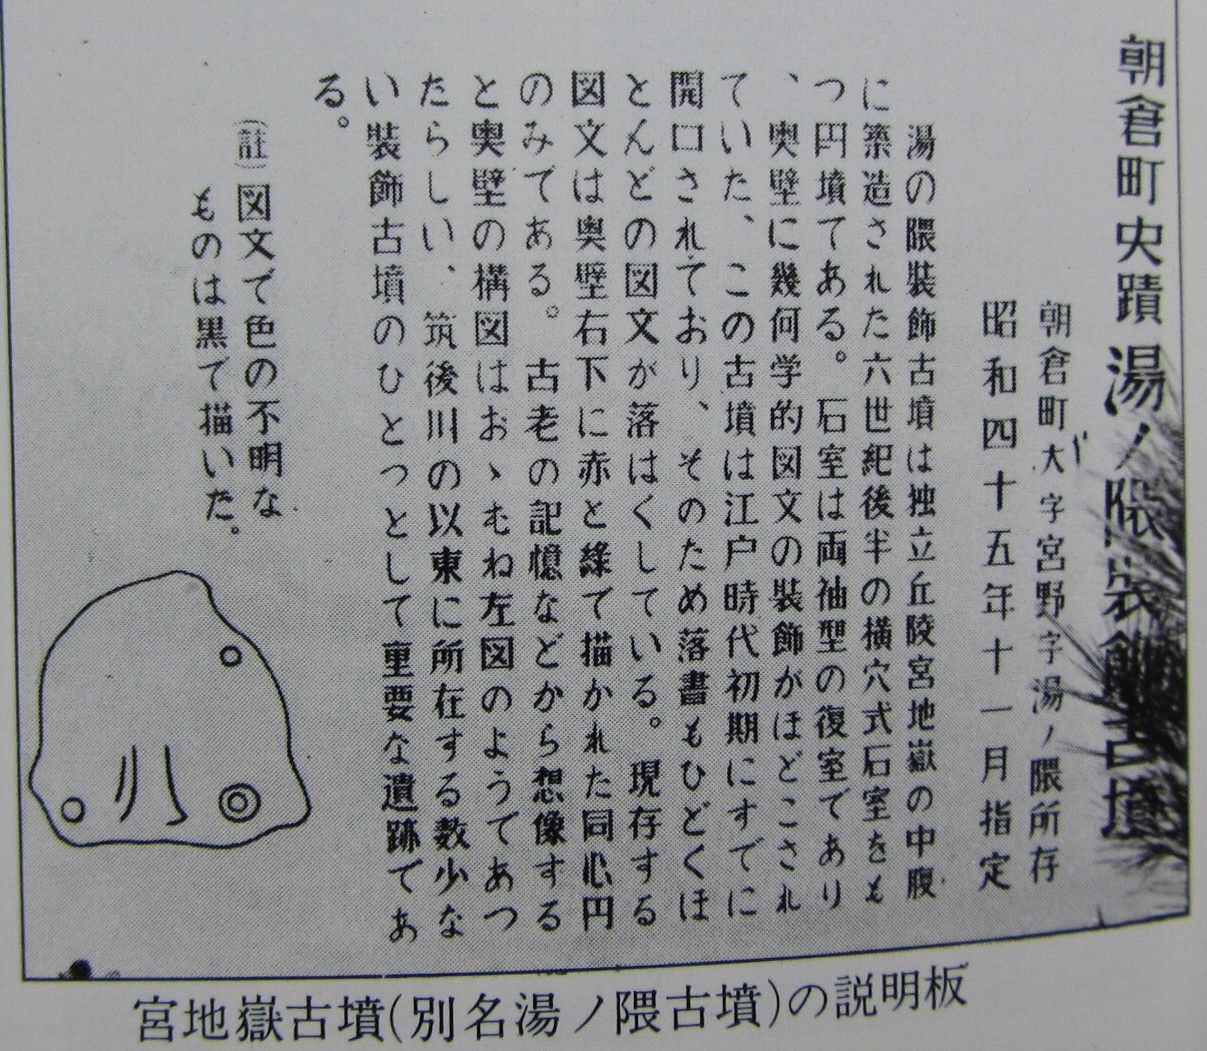 朝倉町史蹟 湯ノ隈装飾古墳
朝倉町大字宮野字湯ノ隈所存
昭和四十五年十一月指定
湯の隈装飾古墳は独立丘陵宮地嶽の中腹
に築造された六世紀後半の横穴式石室をも
つ円墳てある。石室は両袖型の復室であり
、奥壁に幾何学的図文の装飾がほどこされ
ていた、この古墳は江戸時代初期にすでに
開口されており、そのため落書もひどくほ
とんどの図文が落はくしている。現存する
図文は奥壁右下に赤と緑て描かれた同心円
のみてある。古老の記憶などから想像する
と奥壁の構図はおゝむね左図のようであつ
たらしい、筑後川の以東に所在する数少な
い装飾古墳のひとつとして重要な遺跡であ
る。
(註)図文で色の不明な
ものは黒て描いた。
宮地嶽古墳(別名湯ノ隈古墳)の説明板